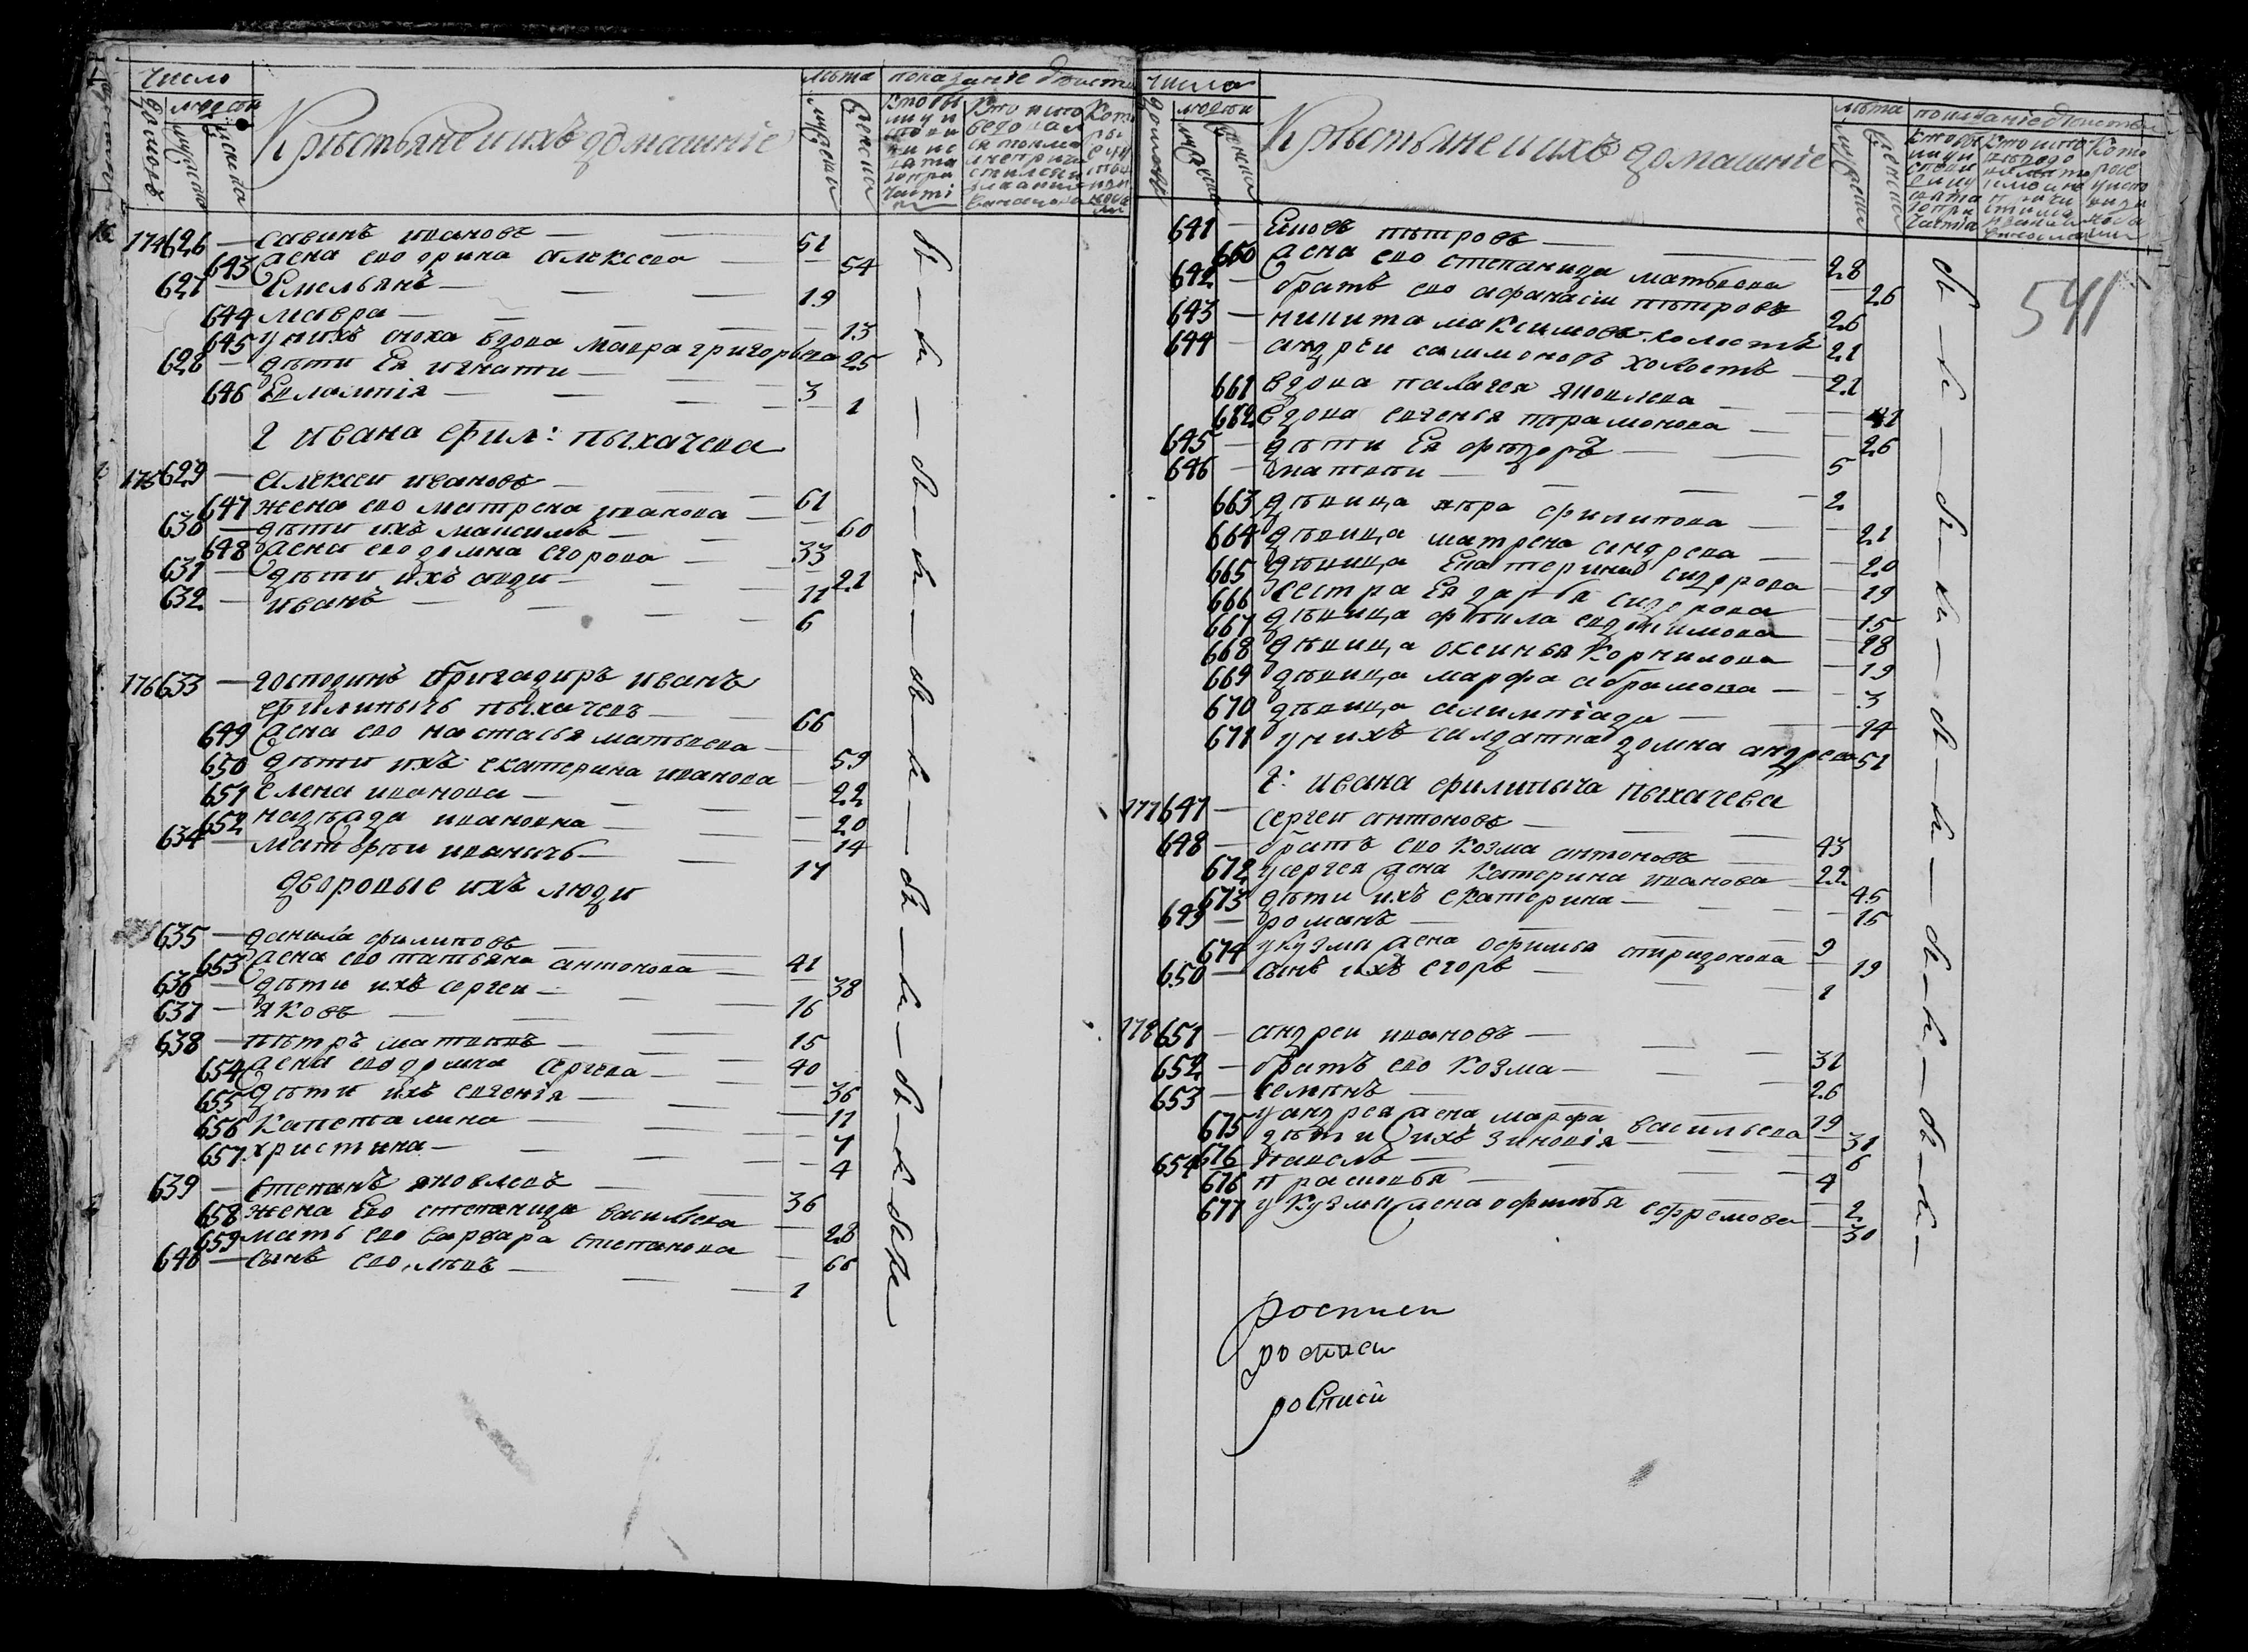 число
людеи
дворовъ
мужеска
женска
Крестьяне и ихъ домашние
лѣта
мужеска
женска
показание
174 626 — савинъ ивановъ — 51
643 жена ево ирина алексева — 54
627 — Емельянъ — 19
644 мавра — 13
645 у нихъ сноха вдова мавра григорьева 25
628 — дѣти Ея игнати — 3
646 Евлампiя — 1
г ивана фил: пыхачева
175 629 — алексеи ивановъ — 61
647 жена ево матрена иванова — 60
630 — дѣти ихъ максимъ — 33
648 жена ево домна егорова — 21
631 — дѣти ихъ авди — 11
632 — иванъ — 6
176 633 — господинъ бригадиръ иванъ
филипычь пыхачевъ — 66
649 жена ево настасья матвѣева — 59
650 дѣти ихъ екатерина иванова 22
651 елена иванова — 20
652 надѣжда ивановна — 14
634 — матфѣи иванычь — 17
дворовые ихъ люди
635 — данила филиповъ — 41
653 жена ево татьяна антонова — 38
636 — дѣти ихъ сергеи — 16
637 — яковъ — 15
638 — пѣтръ матвѣвъ — 40
654 жена ево домна сергева — 36
655 дѣти ихъ евгенiя — 11
656 капеталина — 7
657 христина — 4
639 — степанъ яковлевъ — 36
658 жена Ево степанида васильева 28
659 мать ево варвара степанова 66
640 — сынъ ево, лѣвъ — 1
числа
людеи
дворовъ
мужеска
женска
Крестьяне и ихъ домашнiе
лѣта
мужеска
женска
показание
541
641 — пѣтровъ — 28
660 жена ево степанида матвѣева 26
642 — братъ ево афанасiи пѣтровъ 26
643 — никита максимовъ холостъ 21
644 — андреи самсоновъ холостъ 21
661 вдова палагея яковлева — 41
662 вдова евгенья парамонова — 26
645 — дѣти Ея фѣдоръ — 5
646 — матвѣи — 2
663 дѣвица филипова — 21
664 дѣвица матрена андрева — 20
665 дѣвица Екатерина сидорова 19
666 сестра Ея дарья сидорова 15
667 дѣвица фѣкла евдокимова 28
668 дѣвица оксинья корнилова 19
669 дѣвица марфа абрамова — 3
670 дѣвица алимпiада — 14
671 у нихъ салдатка домна андрева 51
г: ивана филипыча пыхачева
177 647 — сергеи антоновъ — 43
648 — братъ ево козма антоновъ 22
672 у сергея жена катерина иванова 45
673 дѣти ихъ екатерина — 15
649 — романъ — 9
674 у кузмы жена офимья спиридонова 19
650 — сынъ ихъ егоръ — 1
178 651 — андреи ивановъ — 31
652 — братъ ево козма — 26
653 — семѣнъ — 19
675 у андрея жена марфа васильева 31
676 дѣти ихъ зиновiя — 6
654 павелъ — 4
676 прасковья — 2
677 у кузмы жена офимья ефремова 30
росписи
росписи
росписи